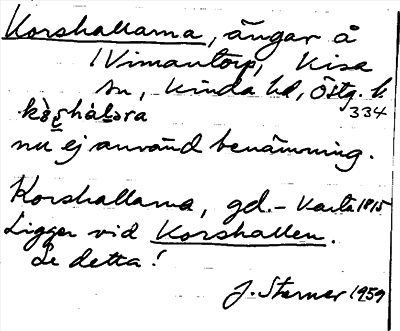 Korshallarna, ängar å
Vimantorp, Kisa
sn, Kinda hd, Östg. l.
334
nu ej använd benämning.
Korshallarna, gd.- karta 1815
Ligger vid Korshallen.
Se detta!
J. Sterner 1959